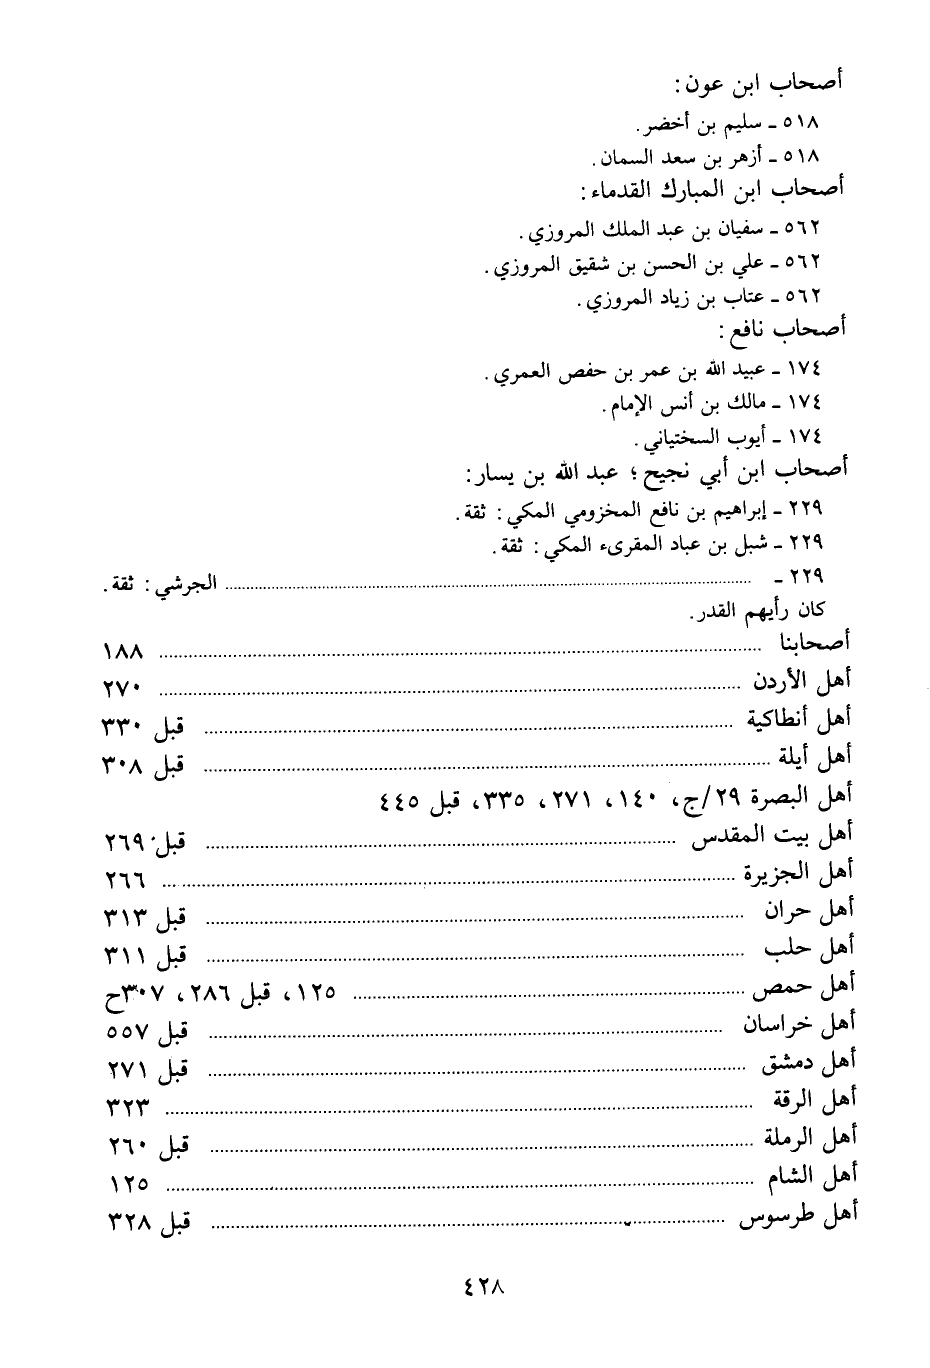 أصحاب ابن عون:
٥١٨ ـ سليم بن أخضر.
٥١٨ ـ أزهر بن سعد السمان.
أصحاب ابن المبارك القدماء:
٥٦٢ ـ سفيان بن عبد الملك المروزي.
٥٦٢ ـ علي بن الحسن بن شقيق المروزي.
٥٦٢ ـ عتاب بن زياد المروزي.
أصحاب نافع:
١٧٤ ـ عبيد الله بن عمر بن حفص العمري.
١٧٤ ـ مالك بن أنس الإمام.
١٧٤ ـ أيوب السختياني.
أصحاب ابن أبي نجيح؛ عبد الله بن يسار:
٢٢٩ ـ إبراهيم بن نافع المخزومي المكي: ثقة.
٢٢٩ ـ شبل بن عباد المقرىء المكي: ثقة.
٢٢٩ ـ ........ الجرشي: ثقة.
كان رأيهم القدر.
أصحابنا ........ ١٨٨
أهل الأردن ........ ٢٧٠
أهل أنطاكية ........ قبل ٣٣٠
أهل أيلة ........ قبل ٣٠٨
أهل البصرة ٢٩/ج، ١٤٠، ٢٧١، ٣٣٥، قبل ٤٤٥
أهل بيت المقدس ........ قبل ٢٦٩
أهل الجزيرة ........ ٢٦٦
أهل حران ........ قبل ٣١٣
أهل حلب ........ قبل ٣١١
أهل حمص ........ ١٢٥، قبل ٢٨٦، ٣٠٧ح
أهل خراسان ........ قبل ٥٥٧
أهل دمشق ........ قبل ٢٧١
أهل الرقة ........ ٣٢٣
أهل الرملة ........ قبل ٢٦٠
أهل الشام ........ ١٢٥
أهل طرسوس ........ قبل ٣٢٨
٤٢٨